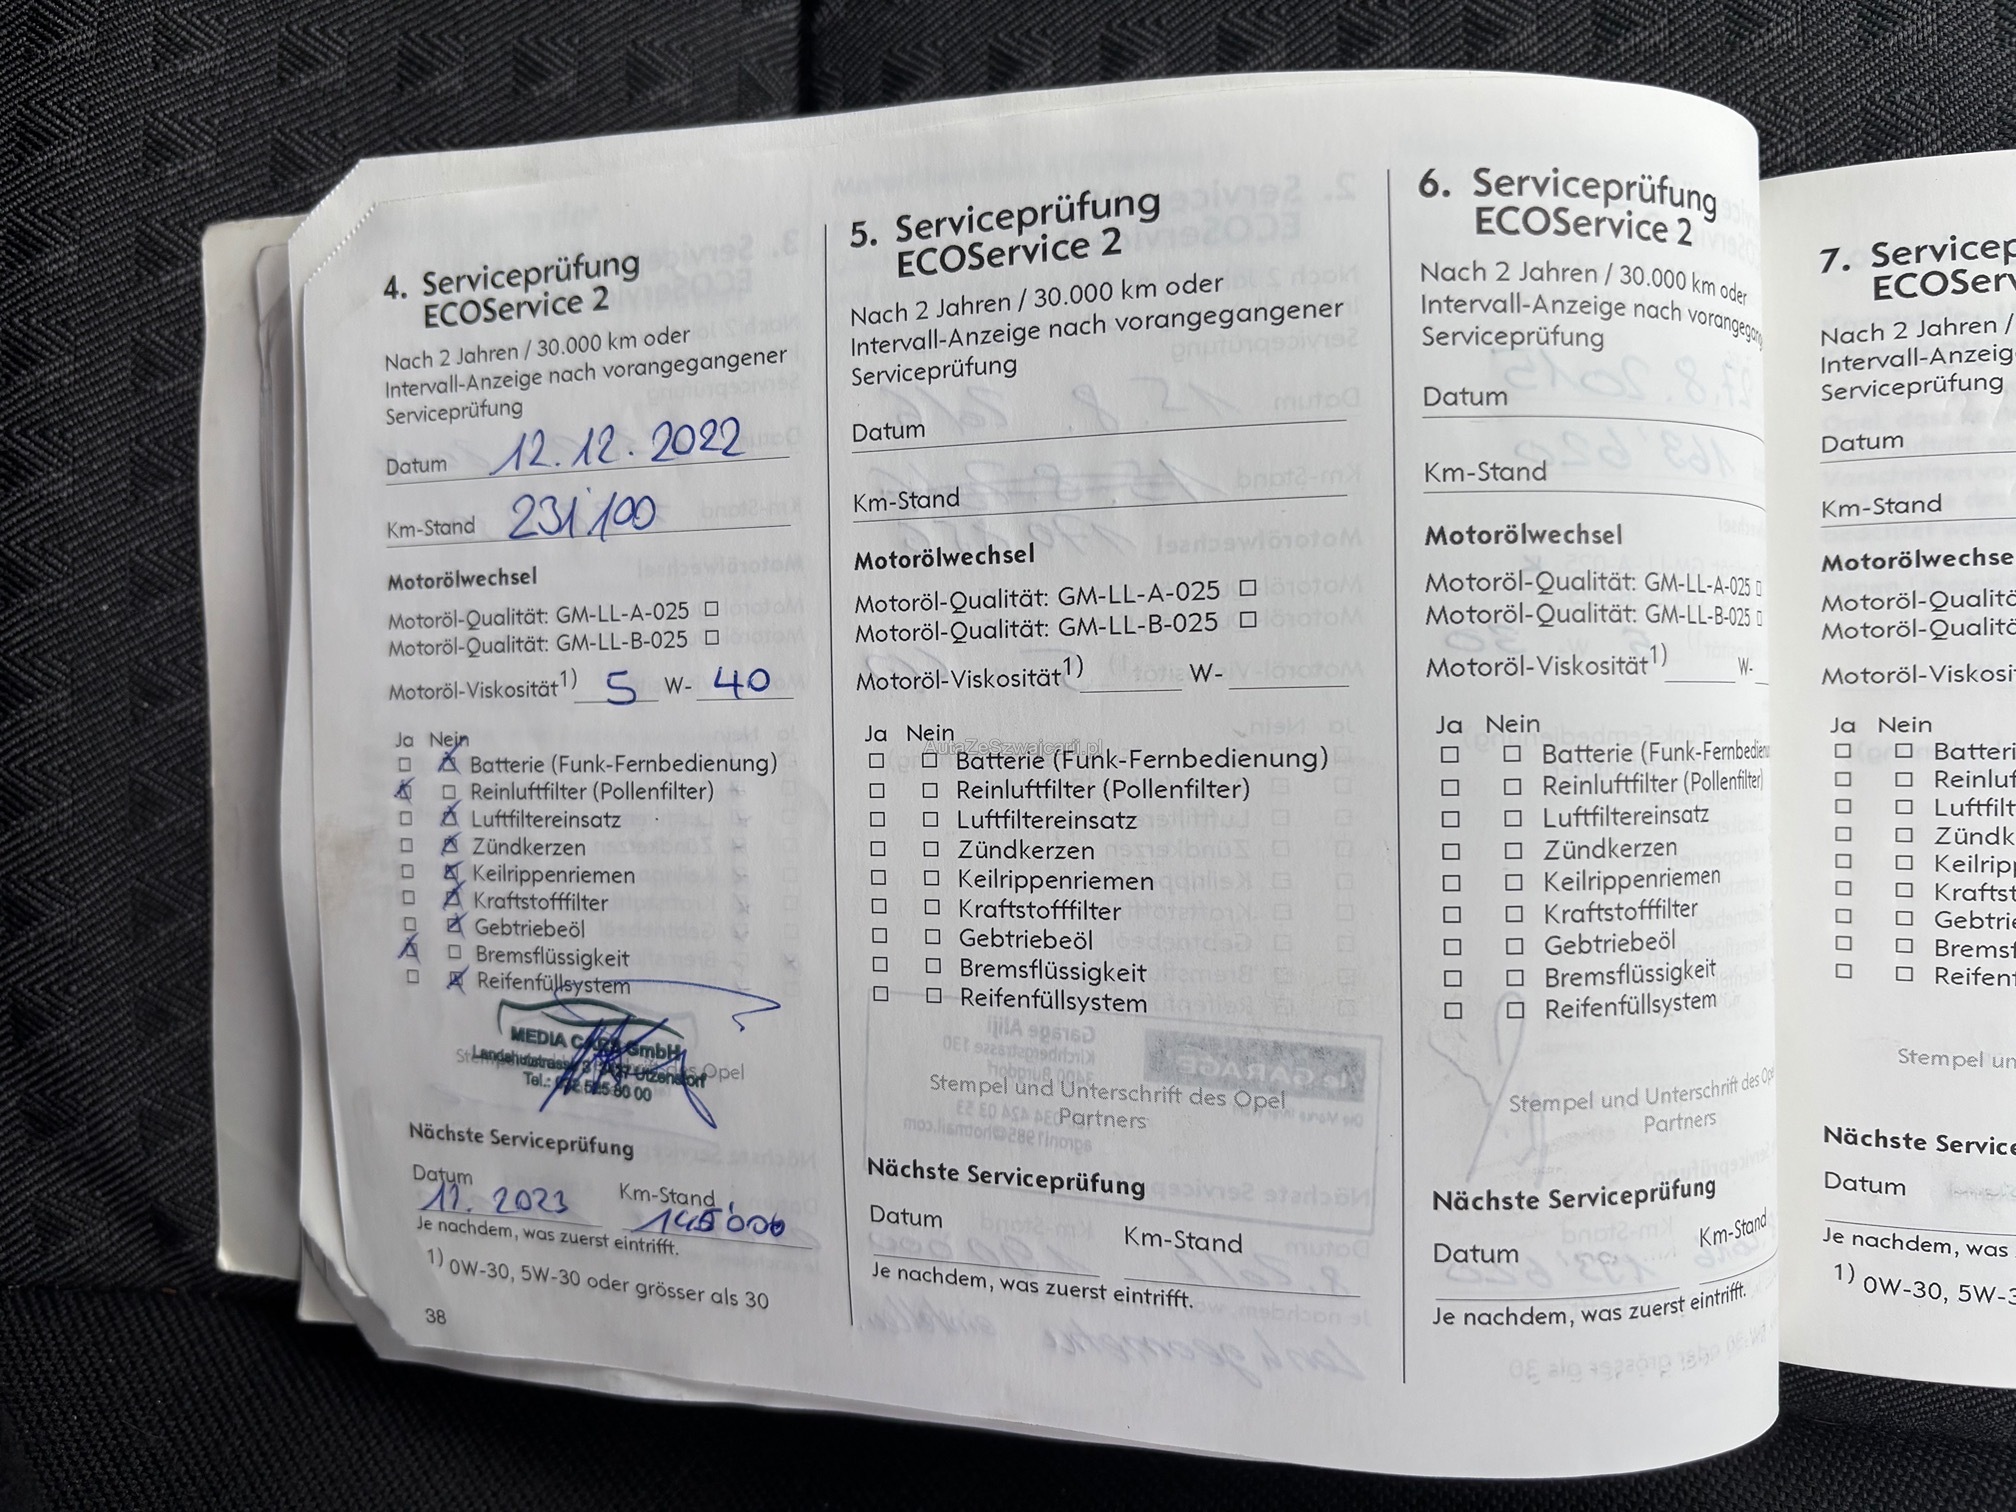 4. Serviceprüfung
ECOService 2
Nach 2 Jahren / 30.000 km oder
Intervall-Anzeige nach vorangegangener
Serviceprüfung
Datum 12.12.2022
Km-Stand 231'100
Motorölwechsel
Motoröl-Qualität: GM-LL-A-025 □
Motoröl-Qualität: GM-LL-B-025 □
Motoröl-Viskosität1) 5 W- 40
Ja Nein
Batterie (Funk-Fernbedienung)
Reinluftfilter (Pollenfilter)
Luftfiltereinsatz
Zündkerzen
Keilrippenriemen
Kraftstofffilter
Gebtriebeöl
Bremsflüssigkeit
Reifenfüllsystem
MEDIA CARS GmbH
Utzenstorf
Opel
Tel.:
Nächste Serviceprüfung
Datum Km-Stand
11.2023
Je nachdem, was zuerst eintrifft.
1) 0W-30, 5W-30 oder grösser als 30
38
5. Serviceprüfung
ECOService 2
Nach 2 Jahren / 30.000 km oder
Intervall-Anzeige nach vorangegangener
Serviceprüfung
Datum
Km-Stand
Motorölwechsel
Motoröl-Qualität: GM-LL-A-025 □
Motoröl-Qualität: GM-LL-B-025 □
Motoröl-Viskosität1) W-
Ja Nein
AutaZeSzwajcarii.pl
Batterie (Funk-Fernbedienung)
Reinluftfilter (Pollenfilter)
Luftfiltereinsatz
Zündkerzen
Keilrippenriemen
Kraftstofffilter
Gebtriebeöl
Bremsflüssigkeit
Reifenfüllsystem
Stempel und Unterschrift des Opel
Partners
Nächste Serviceprüfung
Datum Km-Stand
Je nachdem, was zuerst eintrifft.
6. Serviceprüfung
ECOService 2
Nach 2 Jahren / 30.000 km oder
Intervall-Anzeige nach vorangegang
Serviceprüfung
Datum
Km-Stand
Motorölwechsel
Motoröl-Qualität: GM-LL-A-025 □
Motoröl-Qualität: GM-LL-B-025 □
Motoröl-Viskosität1) W-
Ja Nein
Batterie (Funk-Fernbedienu
Reinluftfilter (Pollenfilter)
Luftfiltereinsatz
Zündkerzen
Keilrippenriemen
Kraftstofffilter
Gebtriebeöl
Bremsflüssigkeit
Reifenfüllsystem
Stempel und Unterschrift des Ope
Partners
Nächste Serviceprüfung
Datum Km-Stand
Je nachdem, was zuerst eintrifft.
7. Servicep
ECOServ
Nach 2 Jahren /
Intervall-Anzeig
Serviceprüfung
Datum
Km-Stand
Motorölwechse
Motoröl-Qualitä
Motoröl-Qualitä
Motoröl-Viskosit
Ja Nein
Batteri
Reinluf
Luftfilt
Zündk
Keilripp
Kraftst
Gebtrie
Bremsf
Reifen
Stempel un
Nächste Service
Datum
Je nachdem, was
1) 0W-30, 5W-3